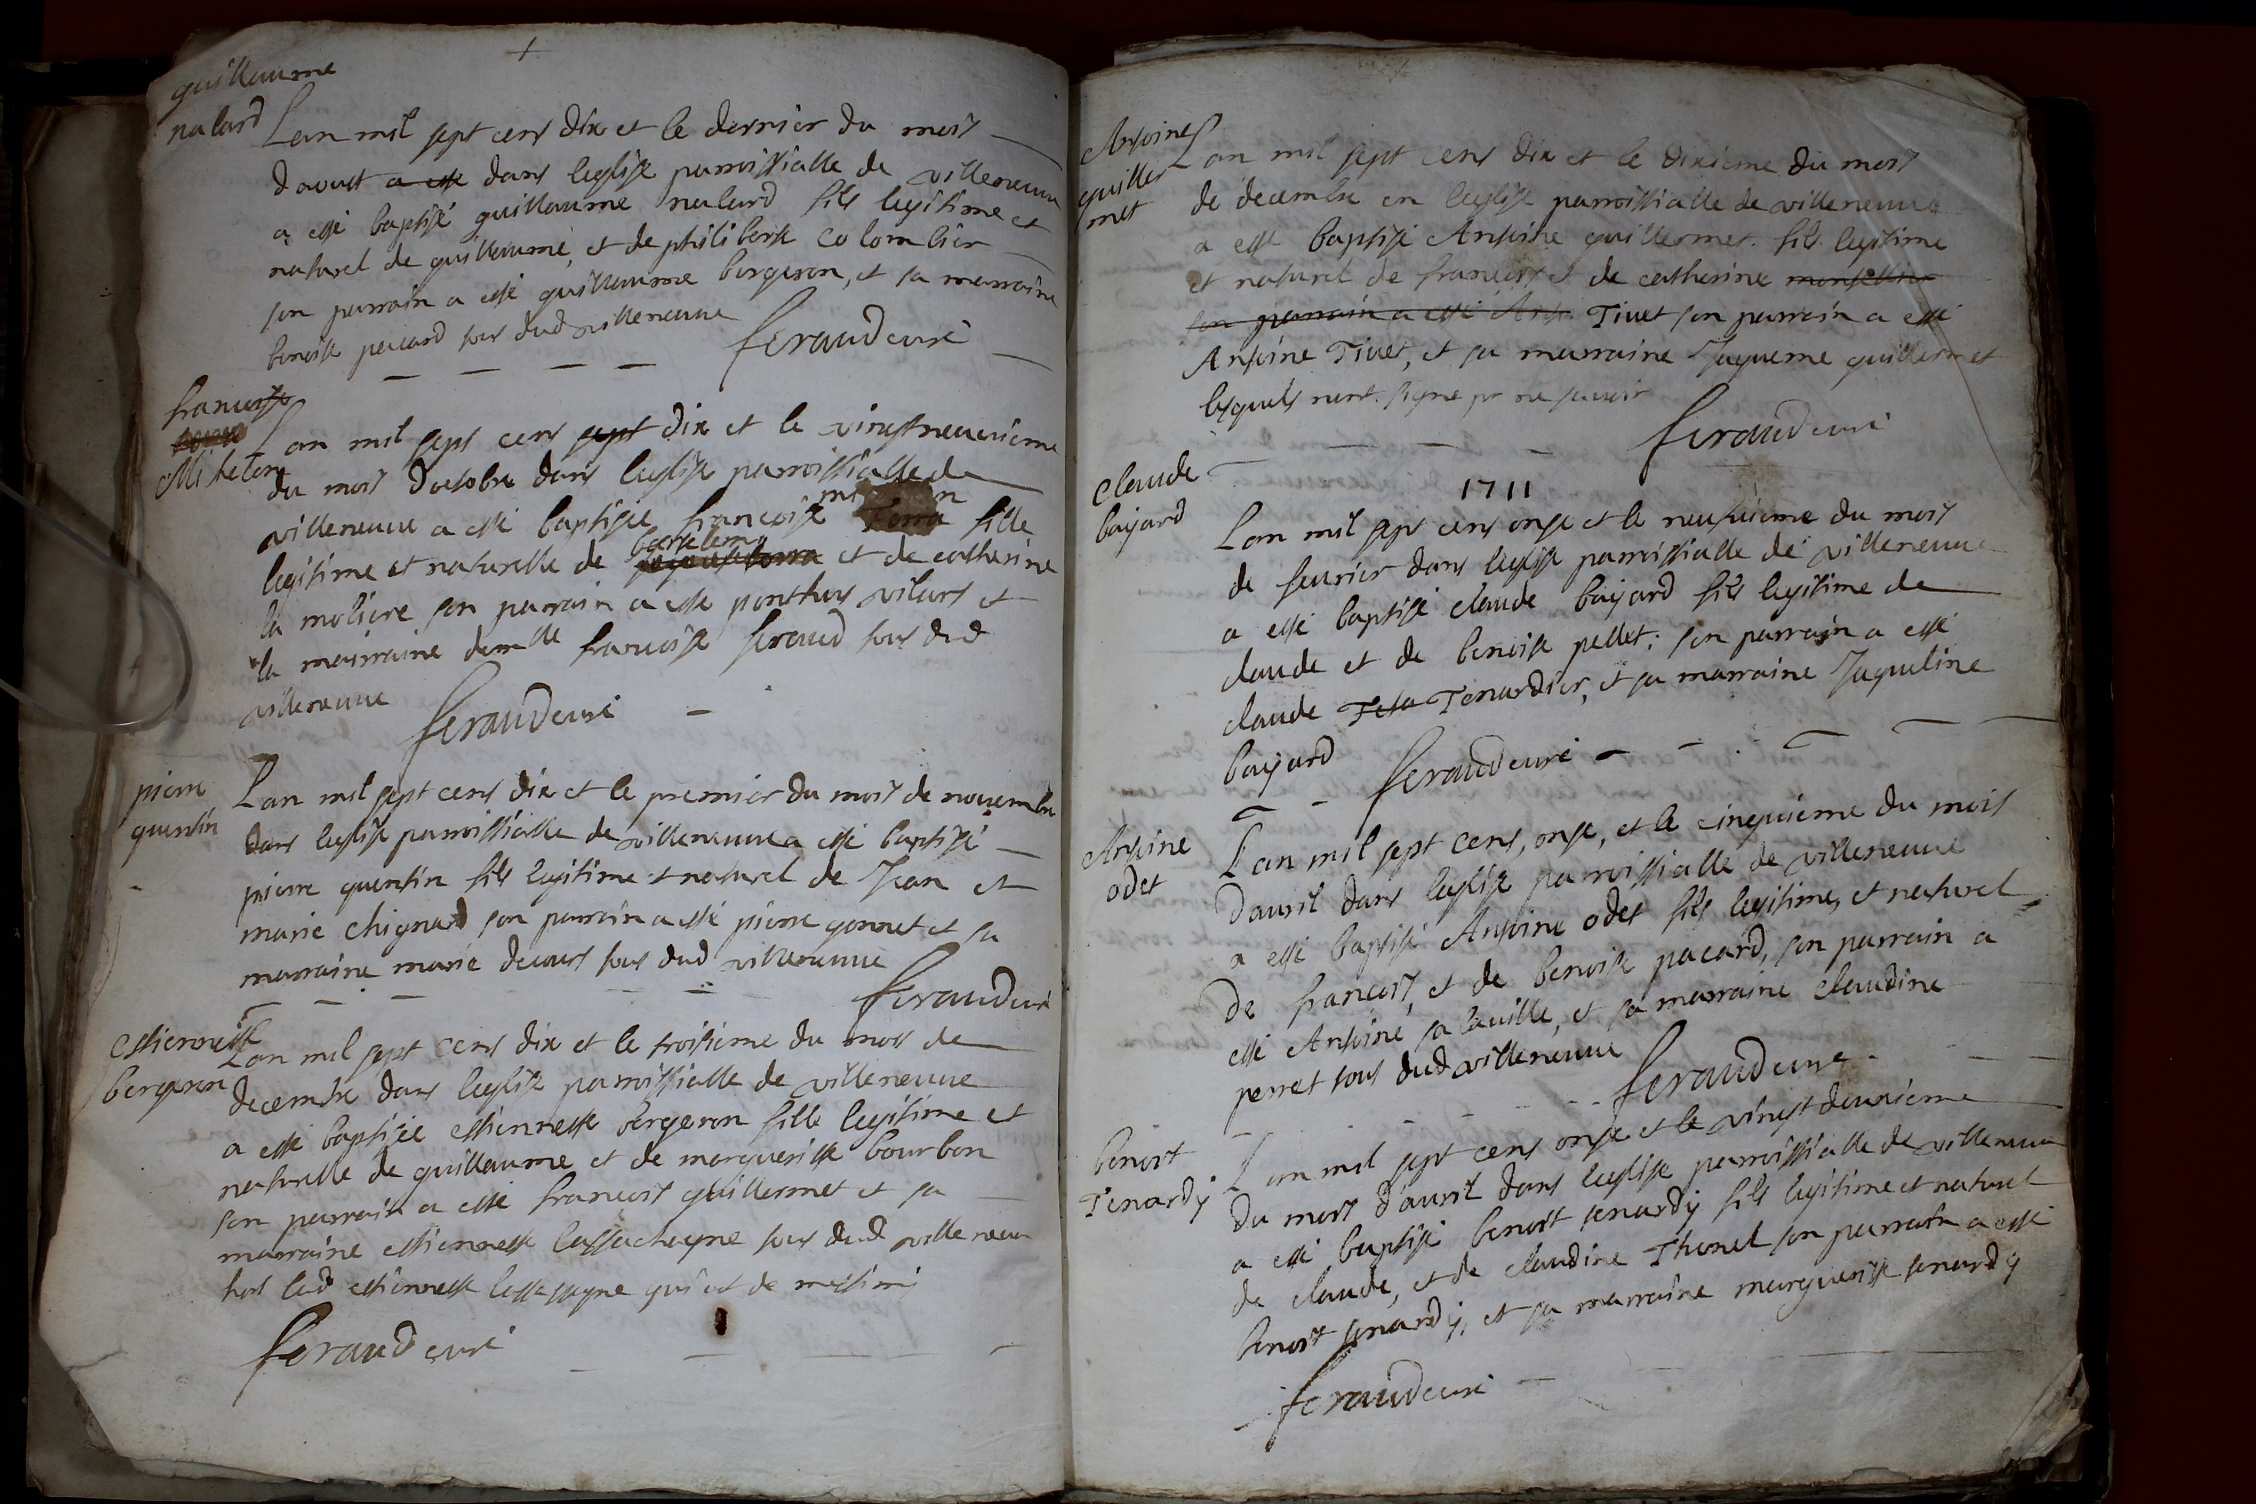 guillaume
nalard
Lan mil sept cens dix et le dernier du mois
daoust a esté dans leglise parroissialle de villeneuve
a esté baptisé guillaume nalard fils legitime et
naturel de guillaume, et de philiberte colombier
son parrain a esté guillaume bergeron, et sa marraine
benoiste pacard tous dud villeneuve
feraud curé
francoise
Micheton
Lan mil sept cens sept dix et le vingt neuvieme
du mois doctobre dans leglise parroissialle de
villeneuve a esté baptisée francoise fille
legitime et naturelle de bartelemy et de catherine
la moliere son parrain a esté ponthus vilars et
la marraine damlle francoise feraud tous dud
villeneuve
feraud curé
pierre
quentin
Lan mil sept cens dix et le premier du mois de novembre
dans leglise parroissialle de villeneuve a esté baptisé
pierre quentin fils legitime et naturel de Jean et
marie chignard son parrain a esté pierre gonnet et sa
marraine marie decours tous dud villeneuve
feraud curé
estiennette
bergeron
Lan mil sept cens dix et le troisieme du mois de
decembre dans leglise parroissialle de villeneuve
a esté baptisée estiennette bergeron fille legitime et
naturelle de guillaume et de marguerite bourbon
son parrain a esté francois guillermet et sa
marraine estiennette lassachagne tous dud villeneuve
hors lad estiennette qui est de messimi
feraud curé
Antoine
guiller
met
Lan mil sept cens dix et le dixieme du mois
de decembre en leglise parroissialle de villeneuve
a esté baptisé Antoine guillermet fils legitime
et naturel de francois et de catherine
son parrain a esté Ant Tivet son parrain a esté
Antoine Tivet, et sa marraine Jaqueme guillermet
lesquels nont signe pr ne scavoir
feraud curé
1711
claude
bajard
Lan mil sept cens onze et le neufvieme du mois
de fevrier dans leglise parroissialle de villeneuve
a esté baptisé claude bajard fils legitime de
claude et de benoite pellet; son parrain a esté
claude Tena Tenardier, et sa marraine Jaqueline
bajard
feraud curé
Antoine
odet
Lan mil sept cens, onze, et le cinquieme du mois
davril dans leglise parroissialle de villeneuve
a esté baptisé Antoine odet fils legitime, et naturel
de francois, et de benoite pacard, son parrain a
esté Antoine sa laville, et sa marraine claudine
perret tous dud villeneuve
feraud curé
benoit
Tenardy
Lan mil sept cens onze et le vingt deuxieme
du mois davril dans leglise parroissialle de villeneuve
a esté baptisé benoit tenardy fils legitime et naturel
de claude, et de claudine Thevenet son parrain a esté
benoit tenardy, et sa marraine marguerite tenardy
feraud curé